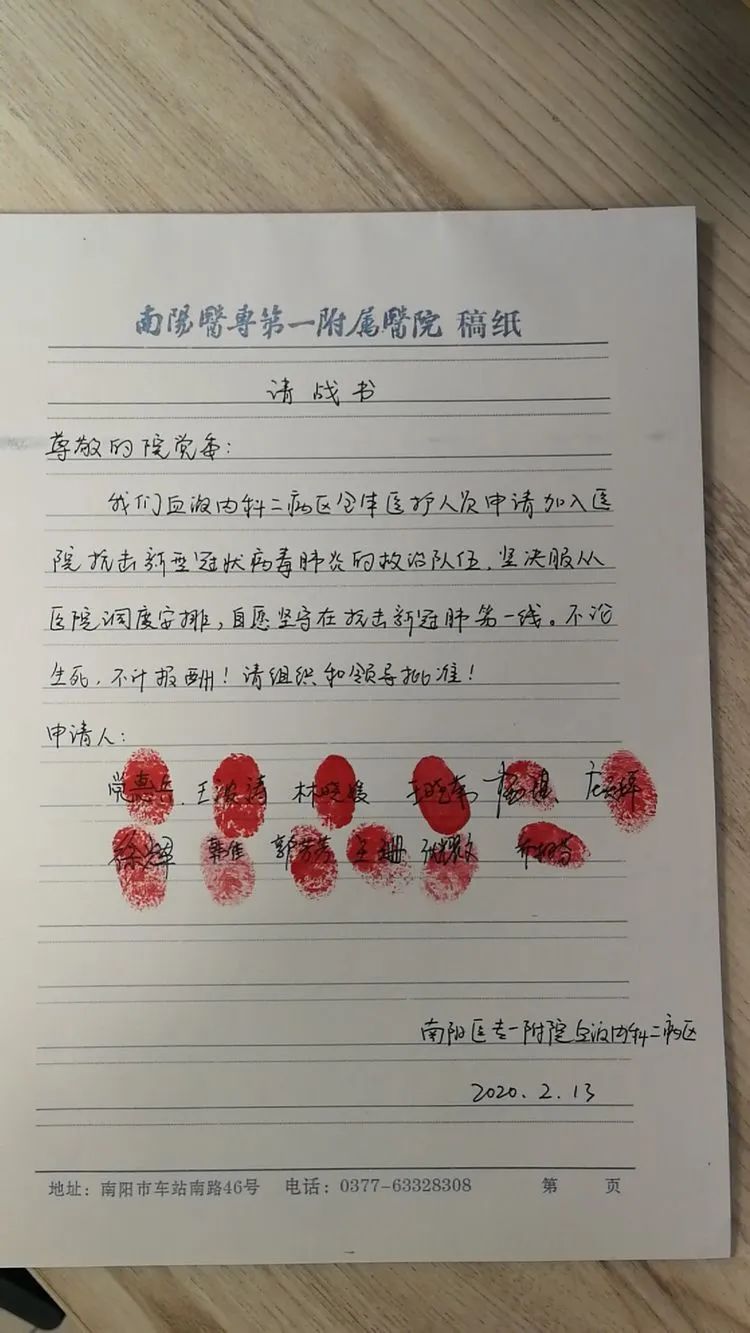 南陽醫専第一附属醫院 稿纸
请战书
尊敬的院党委:
我们血液内科二病区全体医护人员申请加入医
院抗击新型冠状病毒肺炎的救治队伍,坚决服从
医院调度安排,自愿坚守在抗击新冠肺第一线。不论
生死,不计报酬!请组织和领导批准!
申请人:
王波涛 林晓媛 王晓南
徐辉 郭佳 郭芳芳 王珊
南阳医专一附院血液内科二病区
2020.2.13
地址:南阳市车站南路46号 电话:0377-63328308 第 页